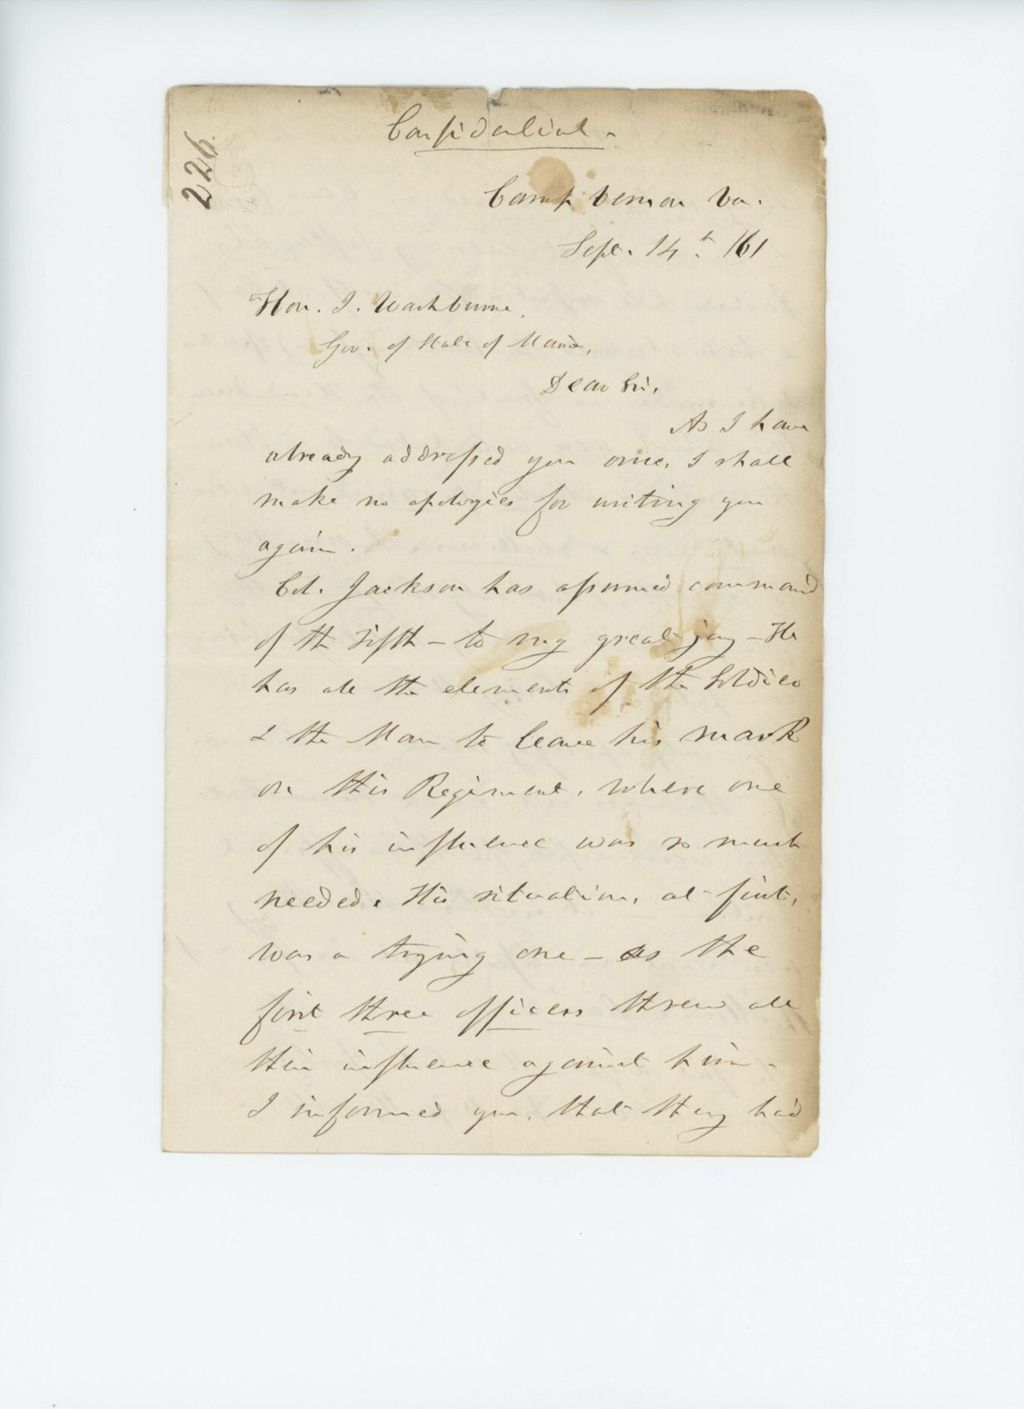 226.
Confidential.
Camp Vernon Va.
Sept. 14th /61
Hon. I. Washburne,
Gov. of State of Maine,
Dear Sir,
As I have
already addressed you once, I shall
make no apologies for writing you
again.
Col. Jackson has assumed command
of the Fifth – to my great joy – He
has all the elements of the Soldier
& the Man to leave his mark
on this Regiment, where one
of his influence was so much
needed. His situation, at first,
was a trying one – as the
first three officers threw all
their influence against him.
I informed you, that they had